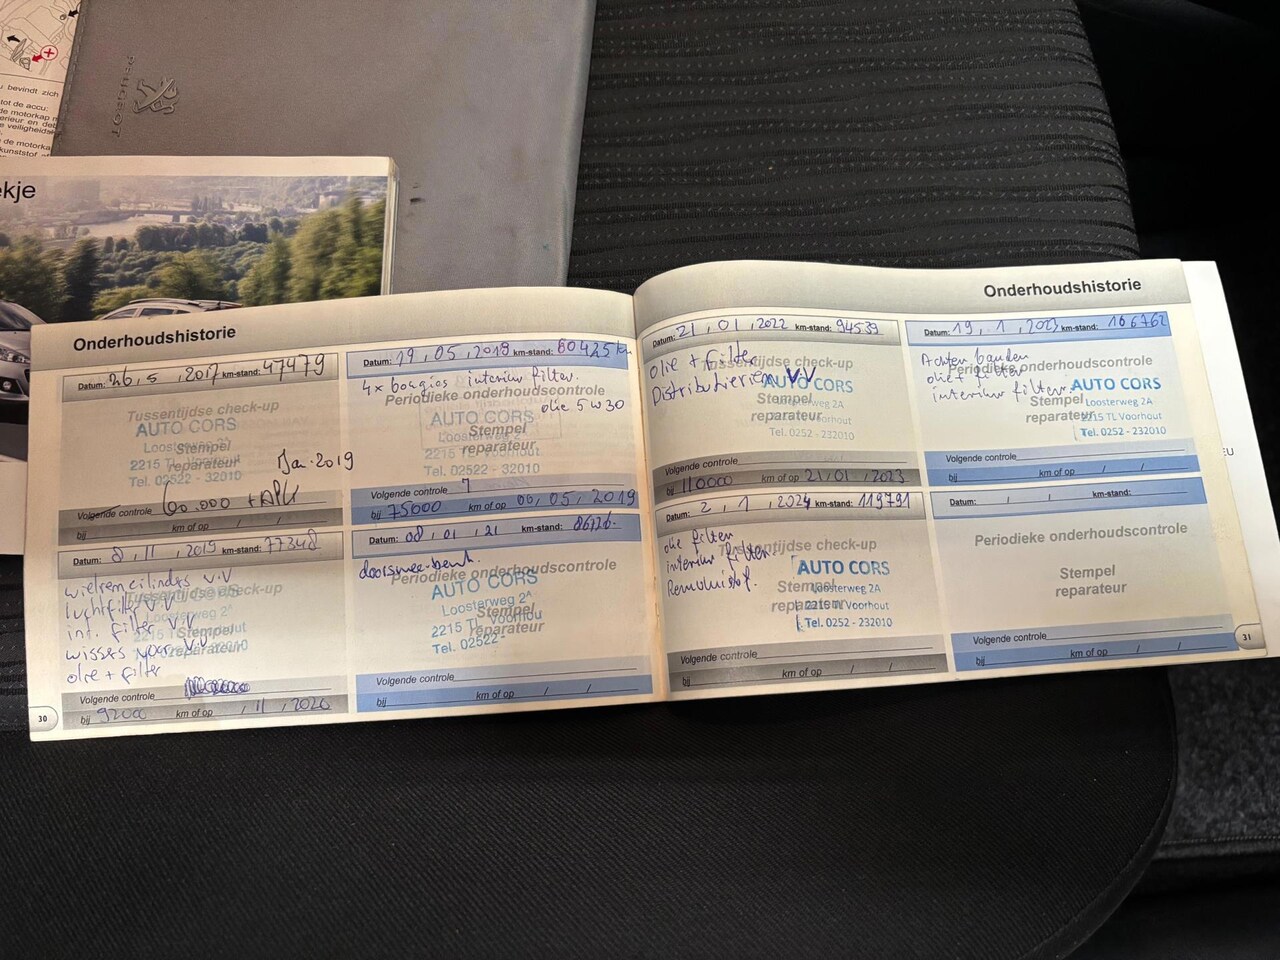 bevindt zich
tot de accu:
de motorkap
kunststof
PEUGEOT
ekje
Onderhoudshistorie
Datum: 26 , 5 , 2017 km-stand: 47479
Tussentijdse check-up
AUTO CORS
Stempel
2215 TL Voorhout
reparateur
Tel. 02522 - 32010
Jan. 2019
Volgende controle 60.000 + APK
bij km of op / /
Datum: 19 , 05 , 2018 km-stand: 60425 km
4x bougies interieur filter.
Periodieke onderhoudscontrole
olie 5w30
AUTO CORS
Stempel
Loosterweg 2
reparateur
2215 TL Voorhout
Tel. 02522 - 32010
Volgende controle
bij 75000 km of op 06, 05, 2019
Datum: 8 , 11 , 2019 km-stand: 77348
wielremcilinders V.V
luchtfilter V.V
Tussentijdse check-up
int. filter V.V
Stempel
wissers voor V.V
reparateur
olie + filter
Volgende controle
bij 92000 km of op , 11 , 2020
Datum: 08 , 01 , 21 km-stand: 86126.
Periodieke onderhoudscontrole
AUTO CORS
Loosterweg 2A
Stempel
2215 TL Voorhou
reparateur
Tel. 02522 -
Volgende controle
bij km of op / /
30
Onderhoudshistorie
Datum: 21 , 01 , 2022 km-stand: 94539
olie + filter
Tussentijdse check-up
Distributieriem V.V
AUTO CORS
Loosterweg 2A
Stempel
2215 TL Voorhout
reparateur
Tel. 0252 - 232010
Volgende controle
bij 110000 km of op 21/01/2023
Datum: 19 , 1 , 2023 km-stand: 106762
Achter banden
Periodieke onderhoudscontrole
olie + filter
interieur filter
AUTO CORS
Stempel
Loosterweg 2A
reparateur
2215 TL Voorhout
Tel. 0252 - 232010
Volgende controle
bij km of op / /
Datum: 2 , 1 , 2024 km-stand: 119791
olie filter
Tussentijdse check-up
interieur filter.
Remvloeistof.
AUTO CORS
Stempel
Loosterweg 2A
reparateur
2215 TL Voorhout
Tel. 0252 - 232010
Volgende controle
bij km of op / /
Datum: / / km-stand:
Periodieke onderhoudscontrole
Stempel
reparateur
Volgende controle
bij km of op / /
31
EU